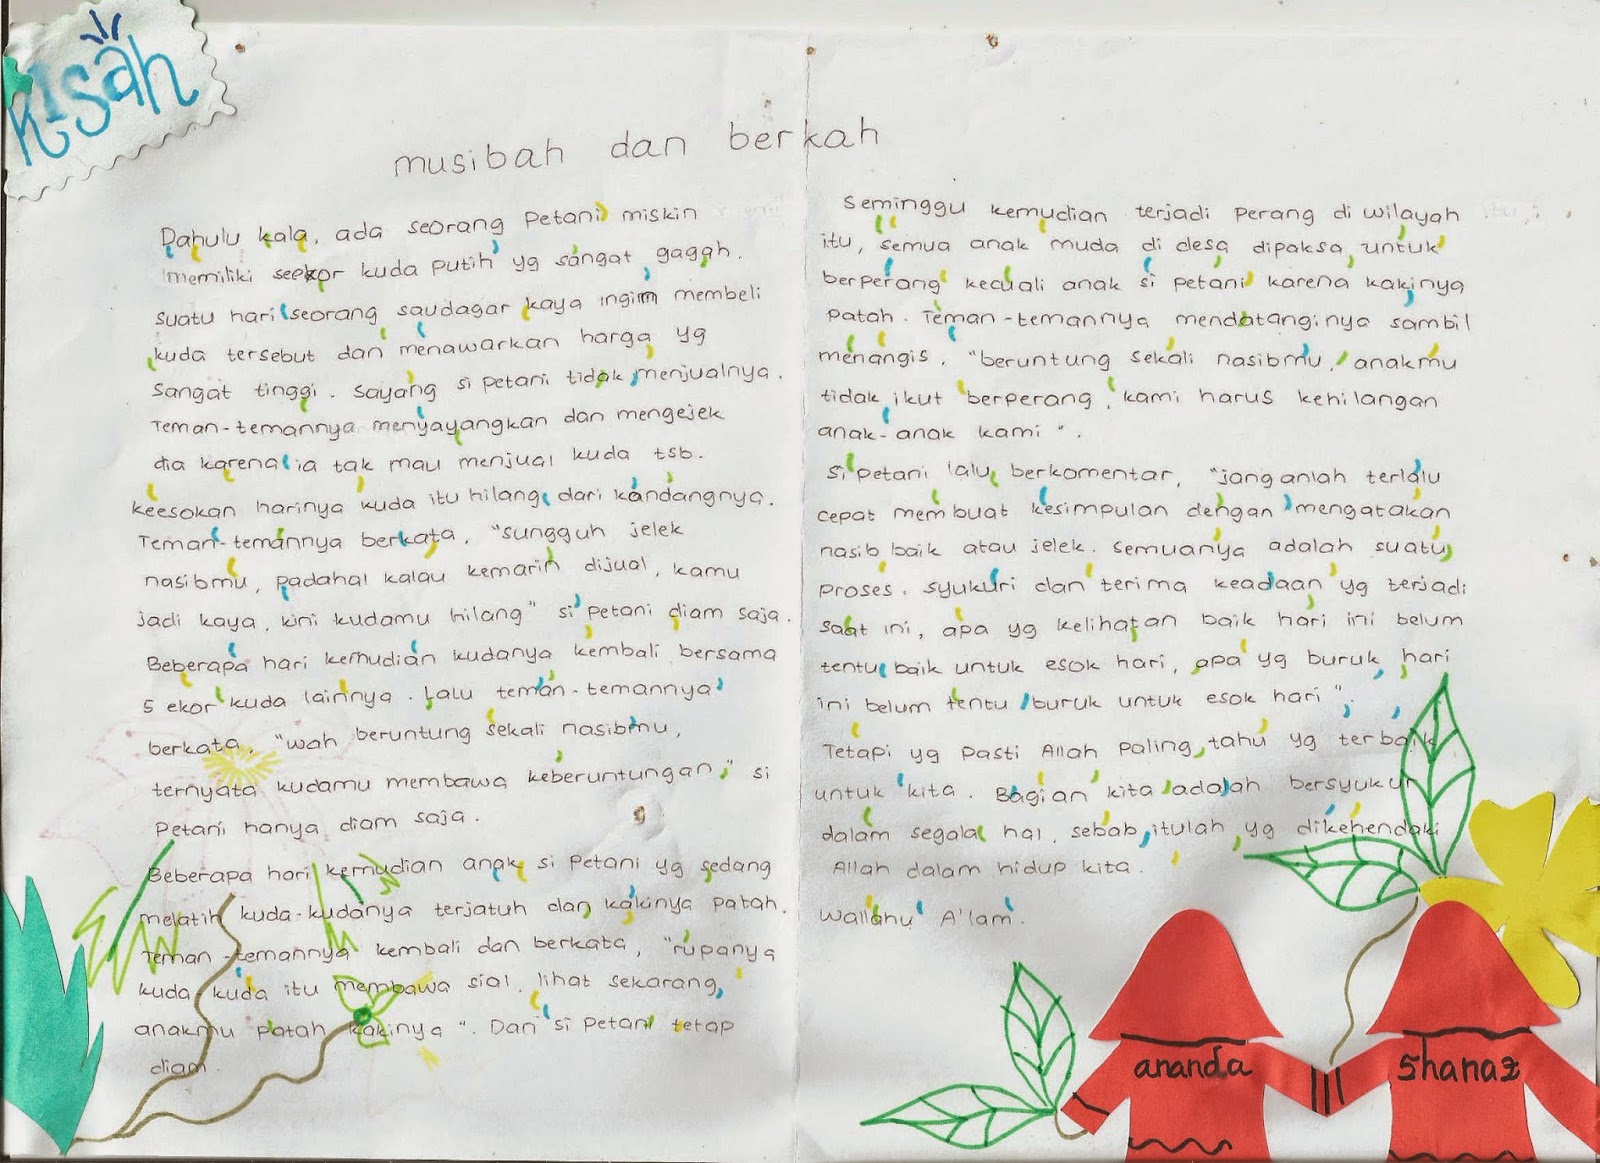 Kisah
musibah dan berkah
Dahulu kala, ada seorang petani miskin
memiliki seekor kuda putih yg sangat gagah.
suatu hari seorang saudagar kaya ingin membeli
kuda tersebut dan menawarkan harga yg
sangat tinggi. sayang si petani tidak menjualnya.
Teman-temannya menyayangkan dan mengejek
dia karena ia tak mau menjual kuda tsb.
keesokan harinya kuda itu hilang dari kandangnya.
Teman-temannya berkata, "sungguh jelek
nasibmu, padahal kalau kemarin dijual, kamu
jadi kaya, kini kudamu hilang" si petani diam saja.
Beberapa hari kemudian kudanya kembali bersama
5 ekor kuda lainnya. Lalu teman-temannya
berkata, "wah beruntung sekali nasibmu,
ternyata kudamu membawa keberuntungan," si
Petani hanya diam saja.
Beberapa hari kemudian anak si petani yg sedang
melatih kuda-kudanya terjatuh dan kakinya patah.
Teman-temannya kembali dan berkata, "rupanya
kuda-kuda itu membawa sial, lihat sekarang,
anakmu patah kakinya". Dan si petani tetap
diam.
Seminggu kemudian terjadi perang di wilayah
itu, semua anak muda di desa dipaksa untuk
berperang kecuali anak si petani karena kakinya
patah. Teman-temannya mendatanginya sambil
menangis, "beruntung sekali nasibmu, anakmu
tidak ikut berperang, kami harus kehilangan
anak-anak kami".
si petani lalu berkomentar, "janganlah terlalu
cepat membuat kesimpulan dengan mengatakan
nasib baik atau jelek. semuanya adalah suatu
proses. syukuri dan terima keadaan yg terjadi
saat ini, apa yg kelihatan baik hari ini belum
tentu baik untuk esok hari, apa yg buruk hari
ini belum tentu buruk untuk esok hari".
Tetapi yg pasti Allah paling tahu yg terbaik
untuk kita. Bagian kita adalah bersyukur
dalam segala hal, sebab itulah yg dikehendaki
Allah dalam hidup kita.
Wallahu A'lam.
ananda
shanaz